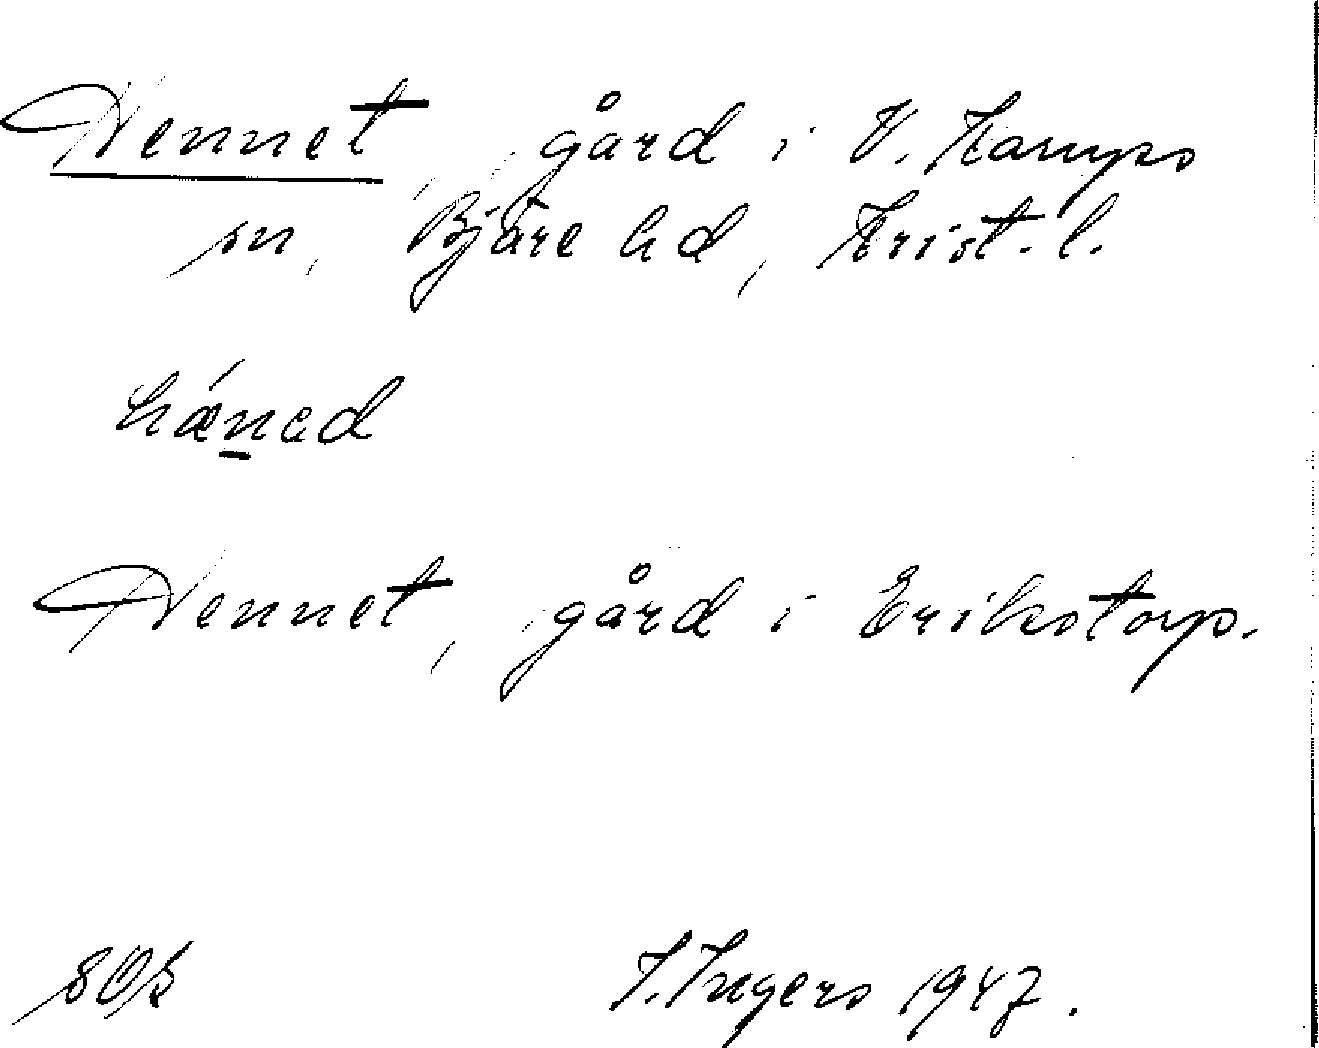 Hennet, gård i V. Karups
sn, Bjäre hd, Krist. l.
hǽn̲əd
Hennet, gård i Erikstorp.
I. Ingers 1947.